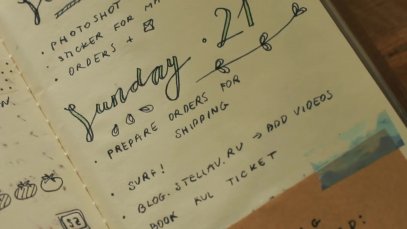 PHOTOSHOT
STICKER FOR MA
ORDERS +
Sunday . 21
PREPARE ORDERS FOR
SHIPPING
SURF!
BLOG.STELLAV.RU → ADD VIDEOS
BOOK KUL TICKET